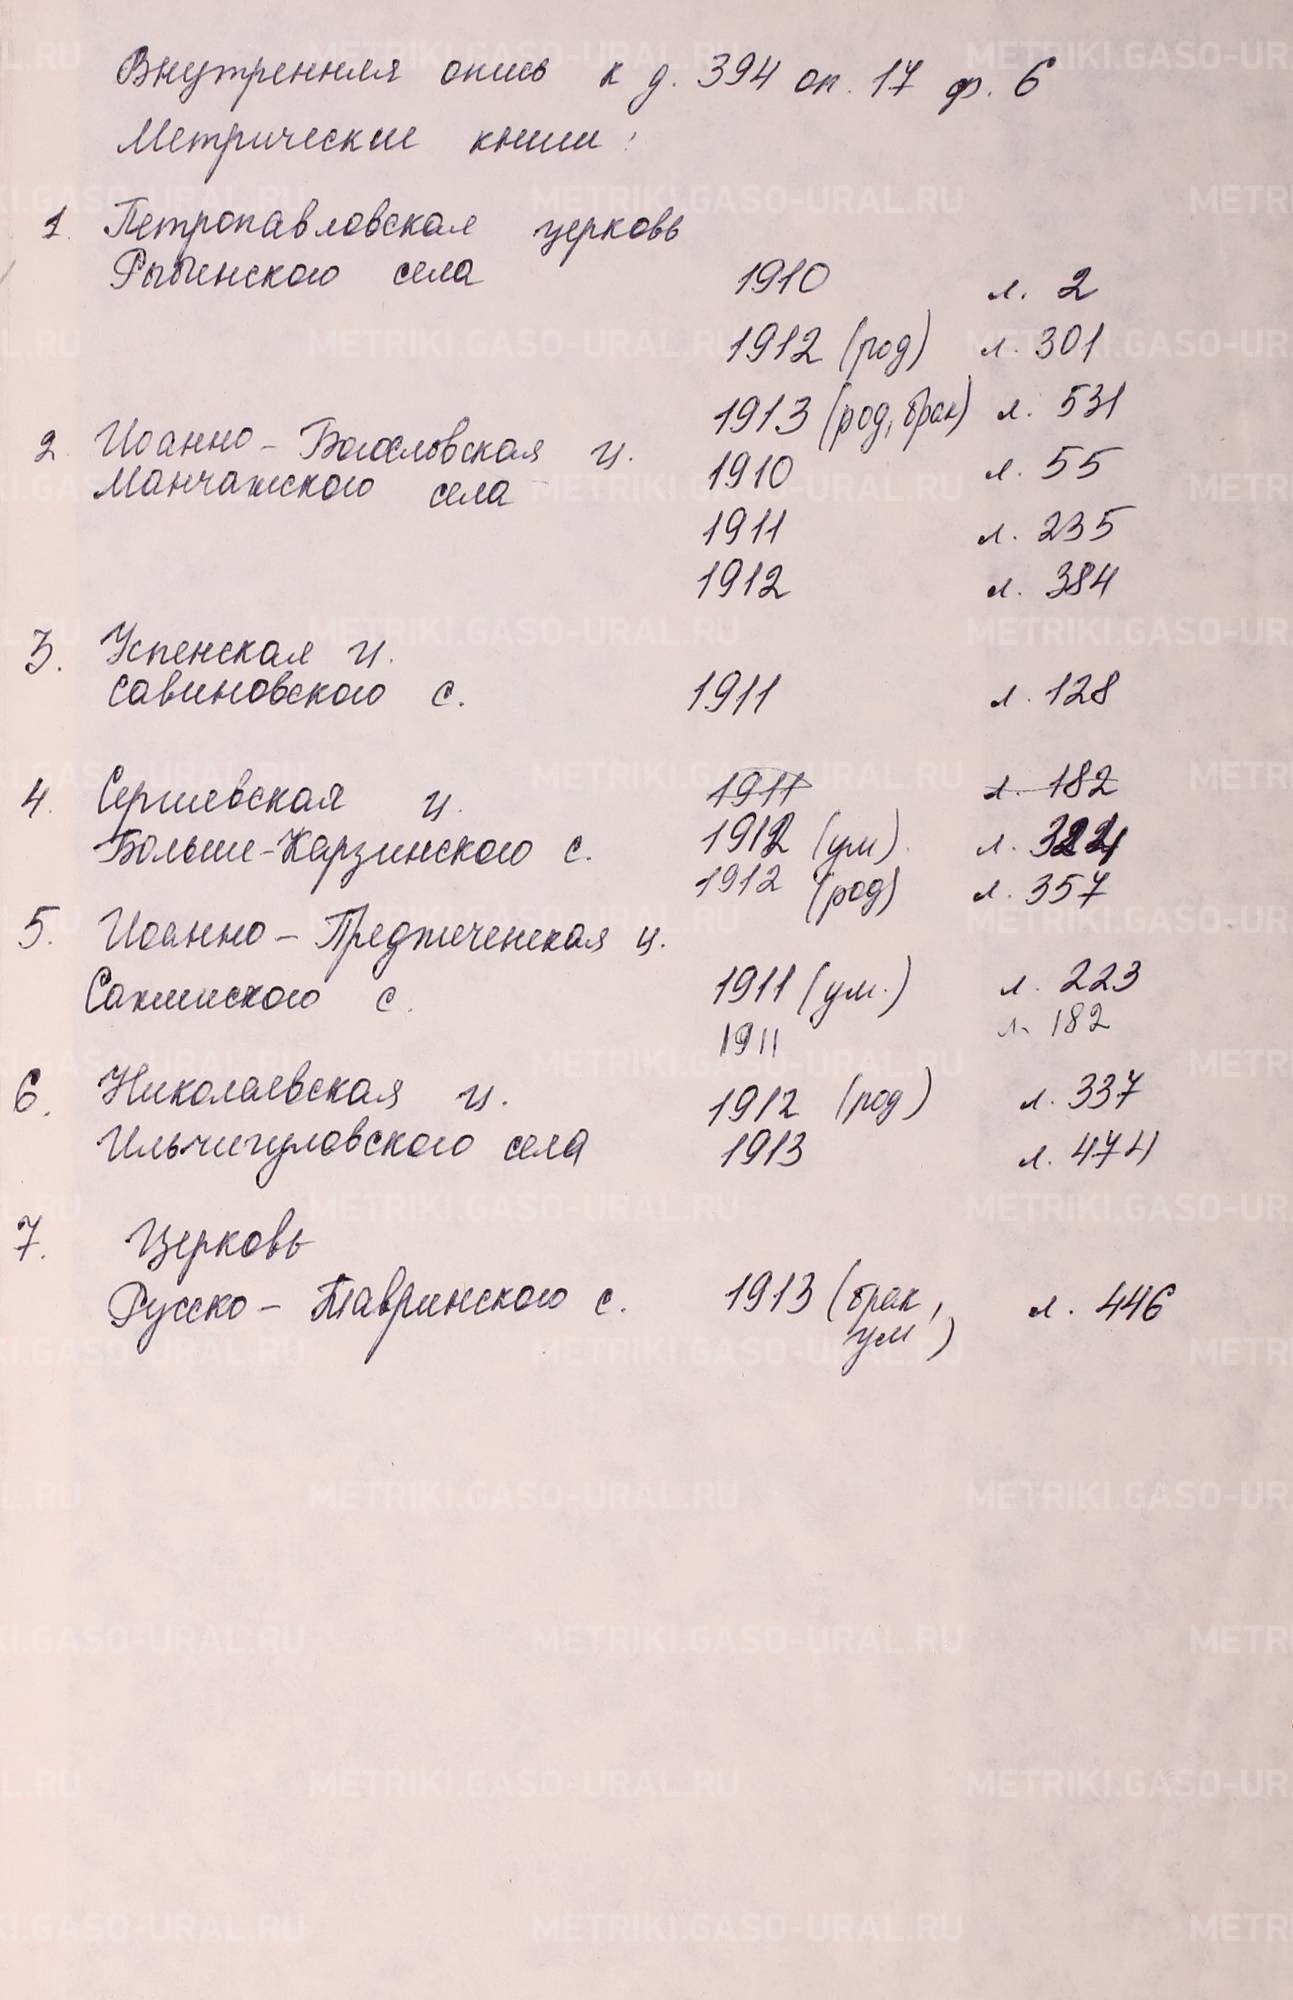 Внутренняя опись к д. 394 оп. 17 ф. 6
Метрические книги:
1. Петропавловская церковь
Рыбинского села 1910 л. 2
1912 (род) л. 301
1913 (род, брак) л. 531
2. Иоанно-Богословская ц.
Манчажского села 1910 л. 55
1911 л. 235
1912 л. 384
3. Успенская ц.
Савиновского с. 1911 л. 128
4. Сергиевская ц. 1911 л. 182
Больше-Карзинского с. 1912 (ум) л. 324
1912 (род) л. 357
5. Иоанно-Предтеченская ц.
с. 1911 (ум.) л. 223
1911 л. 182
6. Николаевская ц. 1912 (род) л. 337
Ильчигуловского села 1913 л. 474
7. Церковь
Русско-Тавринского с. 1913 (брак, л. 446
ум)
METRIKI.GASO-URAL.RU